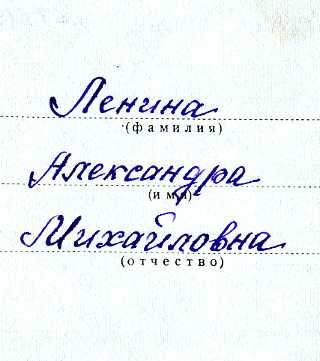 Ленина
(фамилия)
Александра
(имя)
Михайловна
(отчество)